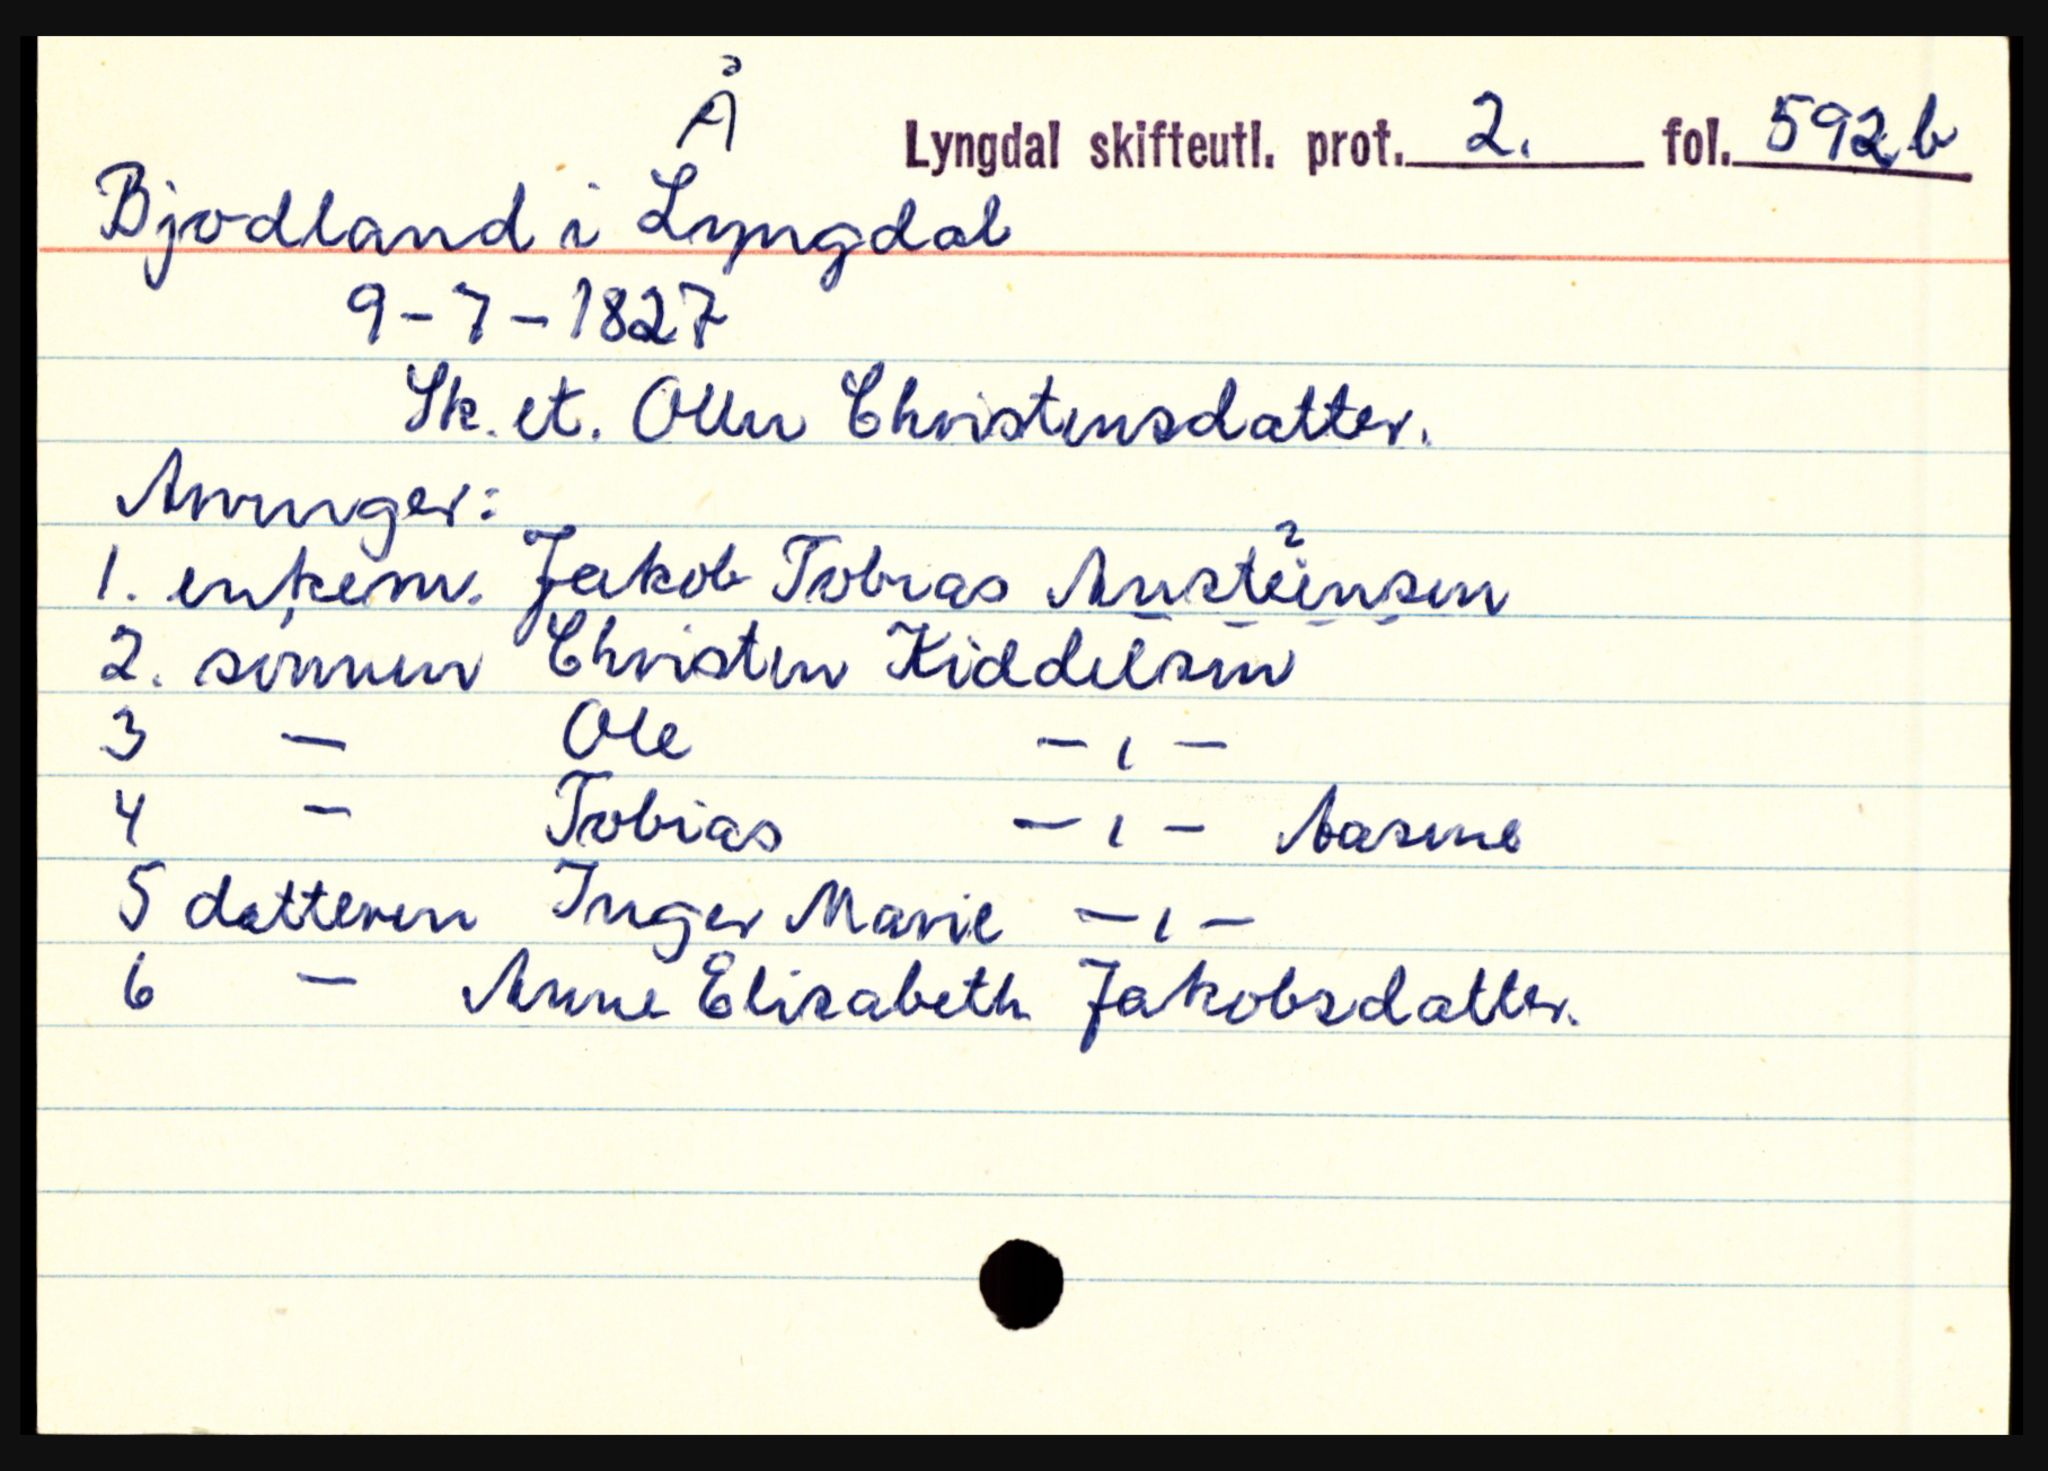 Å
Lyngdal skifteutl. prot. 2. fol. 592b
Bjodland i Lyngdal
9-7-1827
Sk. et. Ollu Christensdatter.
Arvinger:
1. enkem. Jakob Tobias Austeinsen ?
2. sønnen Christen Kiddelsen
3 – Ole – ı –
4 – Tobias – ı – Aasene
5 datteren Inger Marie – ı –
6 – Anne Elisabeth Jakobsdatter.